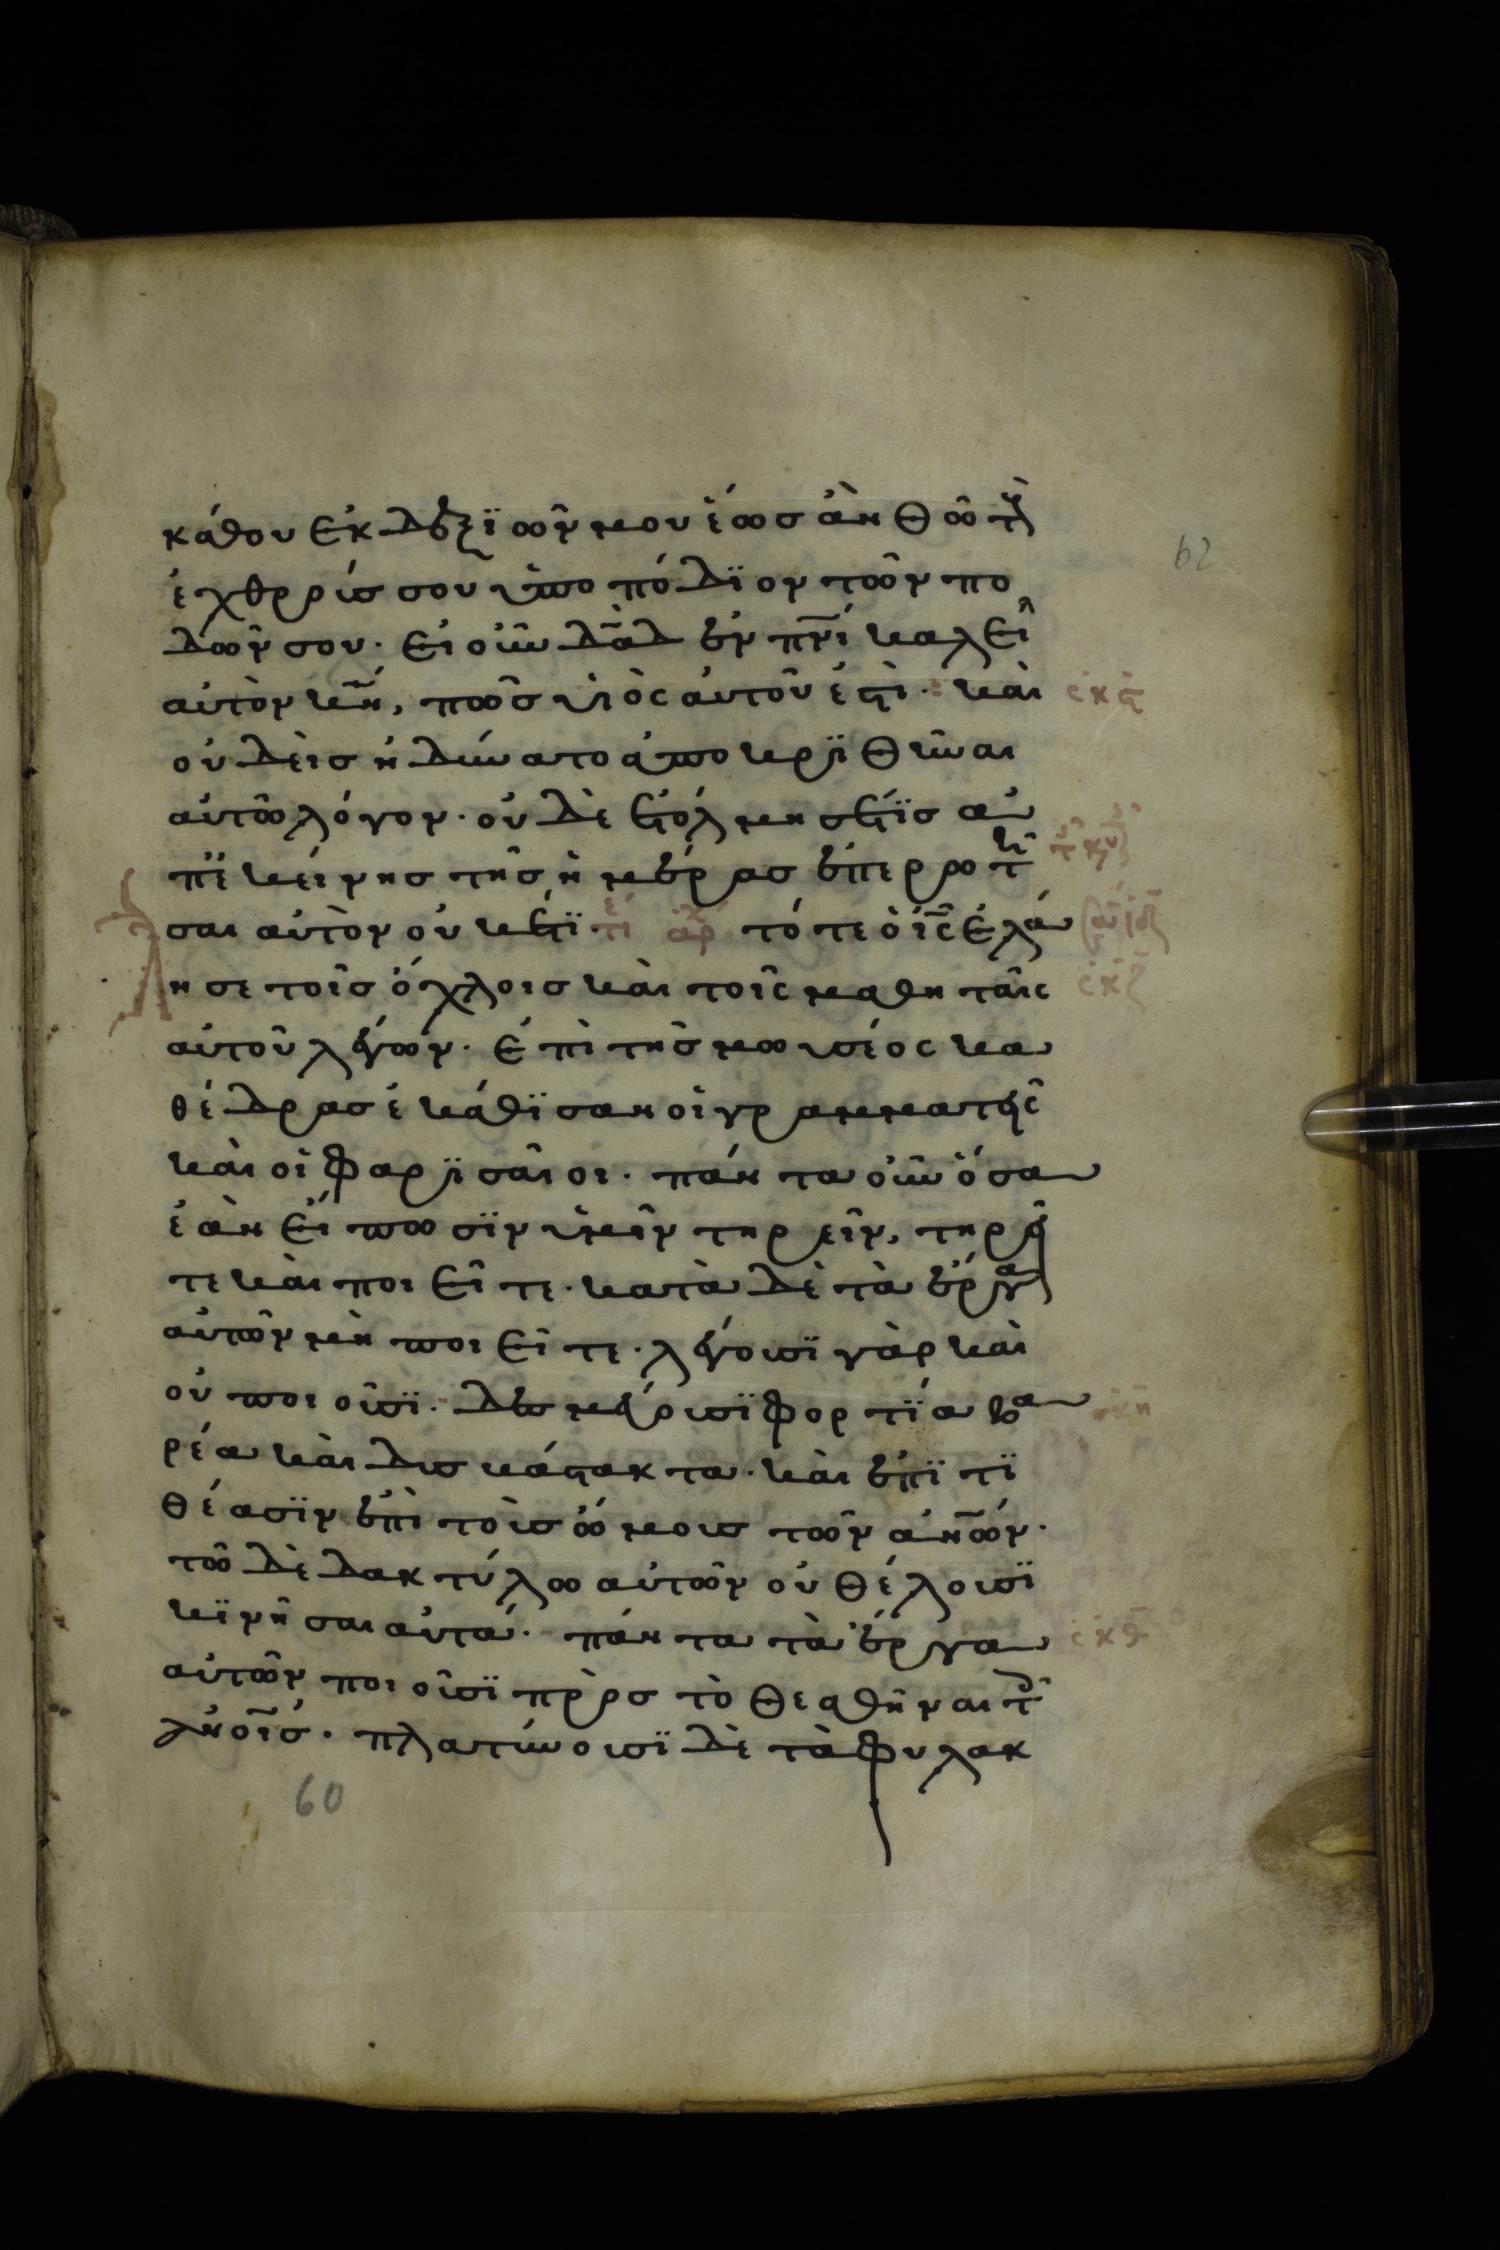 62
κάθου ἐκ δεξϊῶν μου ἕως ἂν θῶ τοὺς
ἐχθρούς σου ὑποπόδϊον τῶν πο
δῶν σου· εἰ οὖν δᾱδ ἐν πνῑ καλεῖ
αὐτὸν κν̄, πῶς υἱὸς αὐτοῦ ἐστὶ· καὶ
οὐδεὶς ἠδύνατο ἀποκρϊθῆναι
αὐτῶ λόγον· οὐδὲ ἐτόλμησέ τϊς ἀ
π' ἐκείνης τῆς ἡμέρας ἐπερωτῆ
σαι αὐτὸν οὐκέτϊ· τότε ὁ ις̄ ἐλά
λησε τοῖς ὄχλοις καὶ τοῖς μαθηταῖς
αὐτοῦ λέγων· ἐπὶ τῆς μωυσέος κα
θέδρας ἐκάθϊσαν οἱ γραμματεῖς
καὶ οἱ φαρϊσαῖοι· πάντα οὖν ὅσα
ἐὰν εἴπωσϊν ὑμῖν τηρεῖν, τηρεῖ
τε καὶ ποιεῖτε· κατὰ δὲ τὰ ἔργα
αὐτῶν μὴ ποιεῖτε· λέγουσϊ γὰρ καὶ
οὐ ποιοῦσϊ· δεσμεύουσϊ φορτϊα βα
ρέα καὶ δυσβάστακτα· καὶ ἐπϊτϊ
θέασϊν ἐπὶ τοὺς ὤμους τῶν ἀν̄ων·
τῶ δὲ δακτύλω αὐτῶν οὐ θέλουσϊ
κϊνῆσαι αὐτά· πάντα τὰ ἔργα
αὐτῶν ποιοῦσϊ πρὸς τὸ θεαθῆναι τοῖς
ἀν̄οις· πλατύνουσϊ δὲ τὰ φυλακ
60